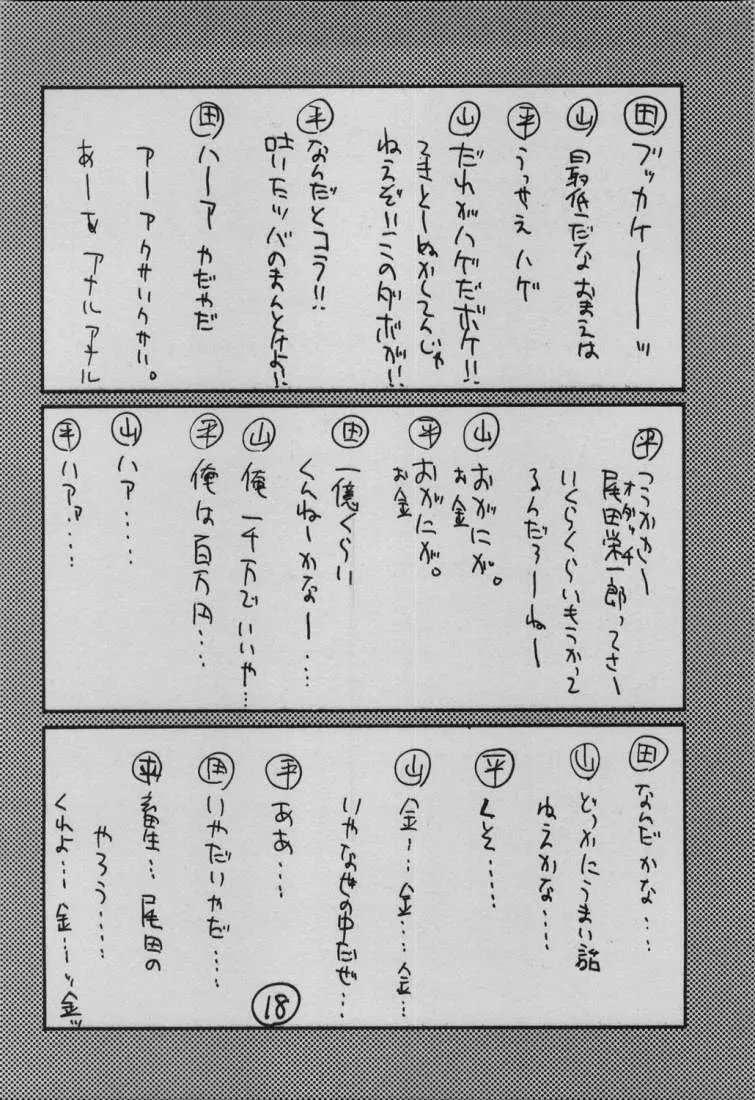 田 ブッカケーーーッ
山 最低だなおまえは
平 うっせえハゲ
山 だれがハゲだボケ!!
てきとーぬかしてんじゃ
ねえぞ!!このダボが!!
平 なんだとコラ!!
吐いたツバのまんとけよ!!
田 ハーア やだやだ
アーアクサいクサい。
あーあ アナルアナル
平 つうかさー
尾田栄一郎ってさー
オダッチ
いくらくらいもうかって
るんだろーねー
山 おがにが。
お金
平 おがにが。
お金
田 一億くらい
くんねーかなー....
山 俺 一千万でいいや...
平 俺は百万円....
山 ハァ.....
平 ハァァ.....
田 なんだかな....
山 どっかにうまい話
ねえかな.....
平 くそ.....
山 金...金...金...
いやなぜの中だぜ...
平 ああ....
田 いやだいやだ....
畜生... 尾田の
やろう.....
くんよ...金...ッ金ッ
18